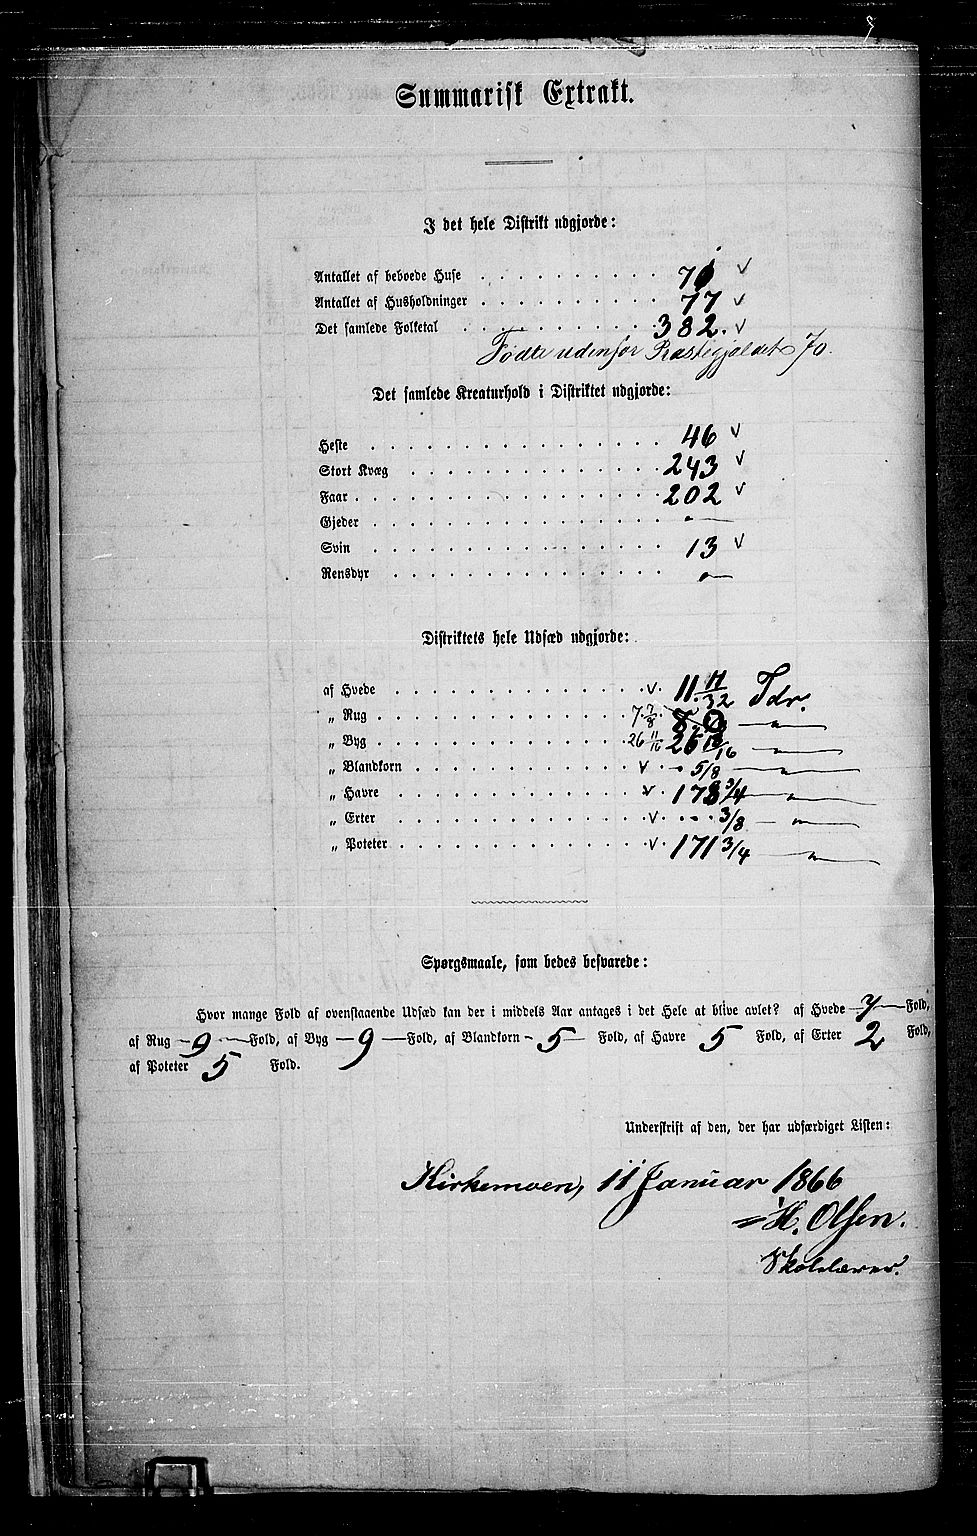 Summarisk Extrakt.
I det hele Distrikt udgjorde:
Antallet af beboede Huse . . . . . . . . . . ✓
Antallet af Husholdninger . . . . . . . . . . 77 ✓
Det samlede Folketal . . . . . . . . . . 382. ✓
Fødte udenfor Præstegjældet 70.
Det samlede Kreaturhold i Distriktet udgjorde:
Heste . . . . . . . . . . 46 ✓
Stort Kvæg . . . . . . . . . . 243 ✓
Faar . . . . . . . . . . 202 ✓
Gjeder . . . . . . . . . . "—
Svin . . . . . . . . . . 13 ✓
Rensdyr . . . . . . . . . . "—
Distriktets hele Udsæd udgjorde:
af Hvede . . . . . . . . . . ✓ 11 11/32 Tdr.
„ Rug . . . . . . . . . . 7 7/8 — " —
„ Byg . . . . . . . . . . 26 11/16 — " —
„ Blandkorn . . . . . . . . . . ✓ " 5/8 — " —
„ Havre . . . . . . . . . . ✓ 178 3/4 — " —
„ Erter . . . . . . . . . . ✓ 3/8 — " —
„ Poteter . . . . . . . . . . ✓ 171 3/4 — " —
Spørgsmaale, som bedes besvarede:
Hvor mange Fold af ovenstaaende Udsæd kan der i middels Aar antages i det Hele at blive avlet? af Hvede 7 Fold,
af Rug 9 Fold, af Byg 9 Fold, af Blandkorn 5 Fold, af Havre 5 Fold, af Erter 2 Fold,
af Poteter 5 Fold.
Underskrift af den, der har udfærdiget Listen:
Kirkemoen, 11 Januar 1866
H. Olsen.
Skolelærer.